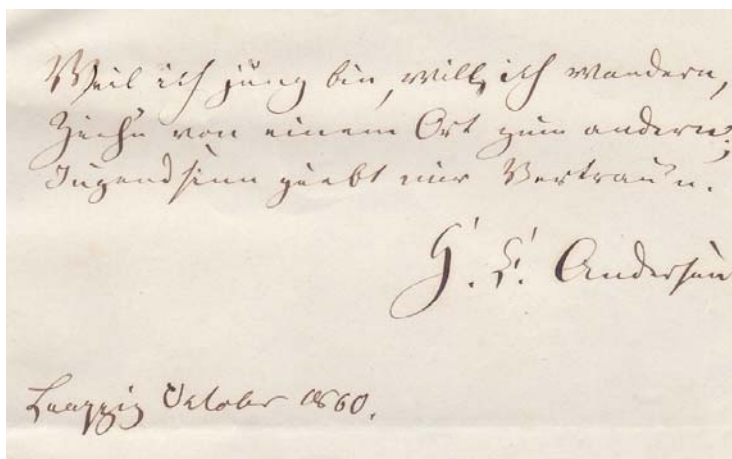 Weil ich jung bin, will ich wandern,
Ziehn von einem Ort zum andern;
Jugendsinn giebt mir Vertraun.
H. C. Andersen
Leipzig October 1860.